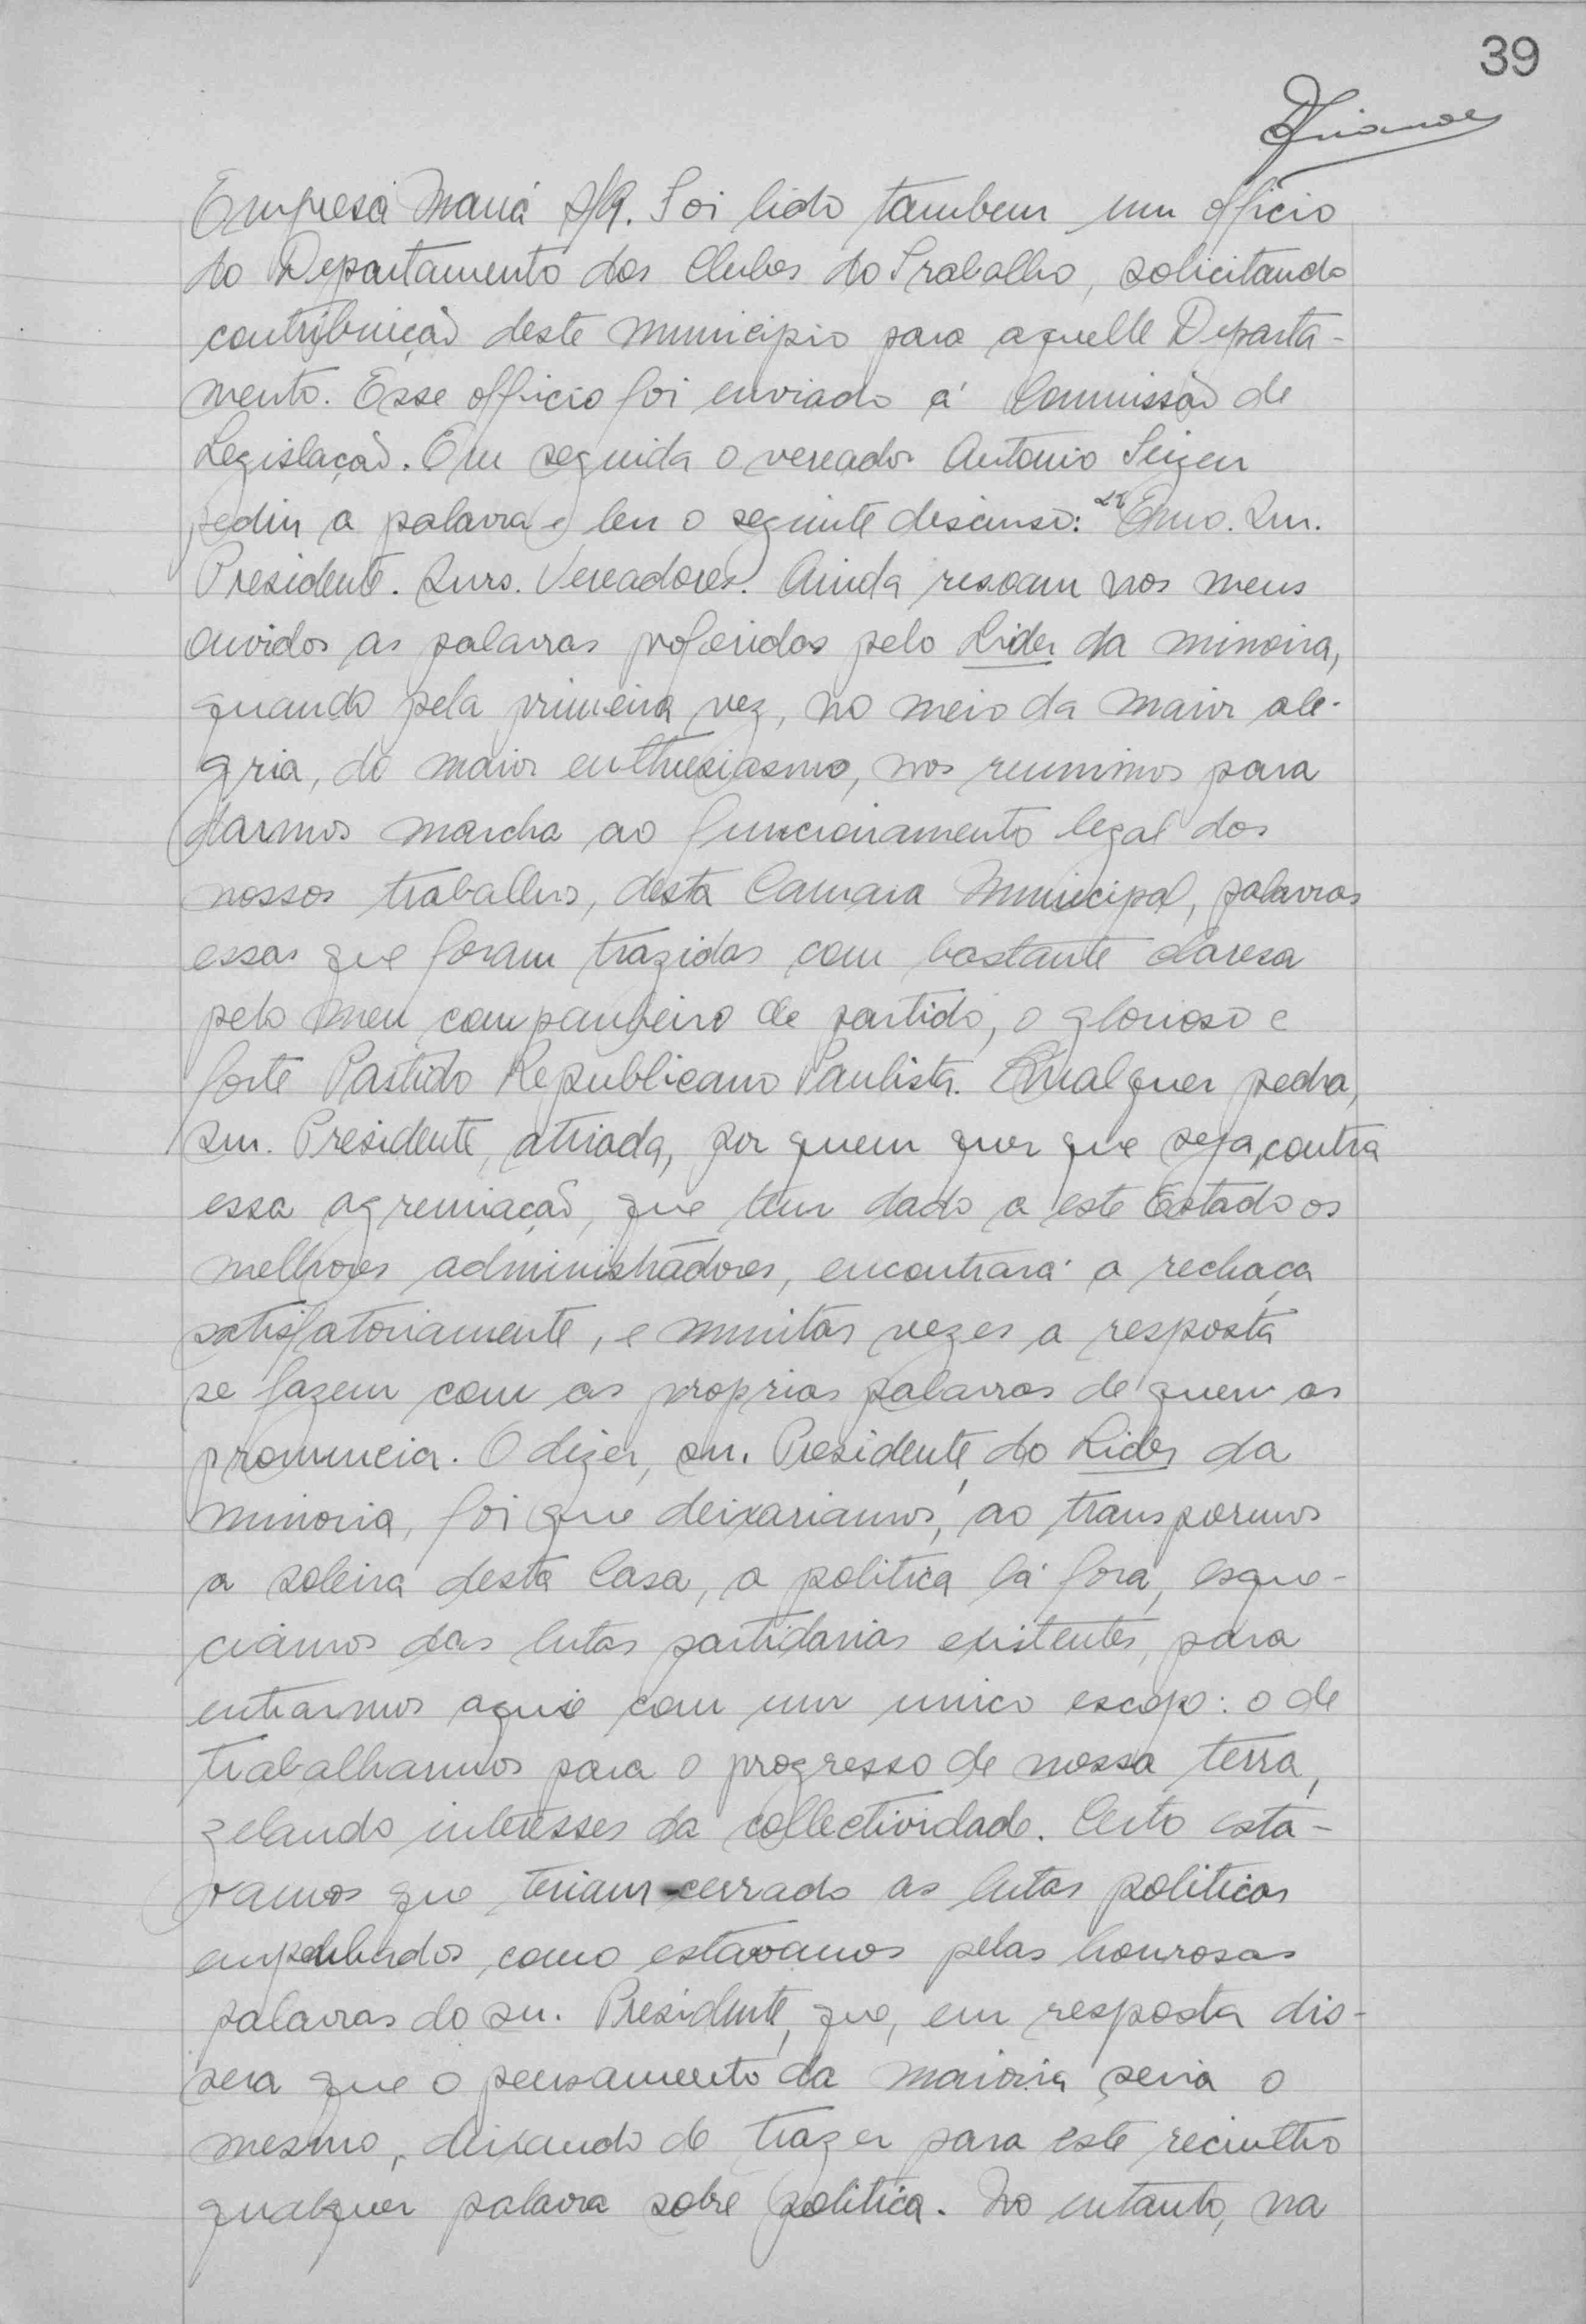 39
Empresa Mauá S/A. Foi lido tambem um officio
do Departamento dos Clubes do Trabalho, solicitando
contribuição deste municipio para aquelle Departa-
mento. Esse officio foi enviado á Commissão de
Legislação. Em seguida o vereador Antonio
pediu a palavra e leu o seguinte discurso: "Exmo. Snr.
Presidente. Snrs. Vereadores. Ainda resoam nos meus
ouvidos as palavras proferidas pelo Lider da minoria,
quando pela primeira vez, no meio da maior ale-
gria, do maior enthusiasmo, nos reunimos para
darmos marcha ao funccionamento legal dos
nossos trabalhos, desta Camara Municipal, palavras
essas que foram trazidas com bastante claresa
pelo meu companheiro de partido, o glorioso e
forte Partido Republicano Paulista. Qualquer pedra,
snr. Presidente, atirada, por quem quer que seja, contra
essa agremiação, que tem dado a este Estado os
melhores administradores, encontrará a rechaça
satisfatoriamente, e muitas vezes a resposta
se fazem com as proprias palavras de quem as
pronuncia. O dizer, snr. Presidente, do Lider da
minoria, foi que deixariamos, ao transpormos
a soleira desta Casa, a politica lá fora, esque-
ciamos das lutas partidarias existentes, para
entrarmos aqui com um unico escopo: o de
trabalharmos para o progresso de nossa terra,
zelando interesses da collectividade. Certo esta-
vamos que teriam cerrado as lutas politicas
empolgados como estavamos pelas honrosas
palavras do snr. Presidente, que, em resposta dis-
sera que o pensamento da maioria seria o
mesmo, deixando de trazer para este recintho
qualquer palavra sobre politica. No entanto, na